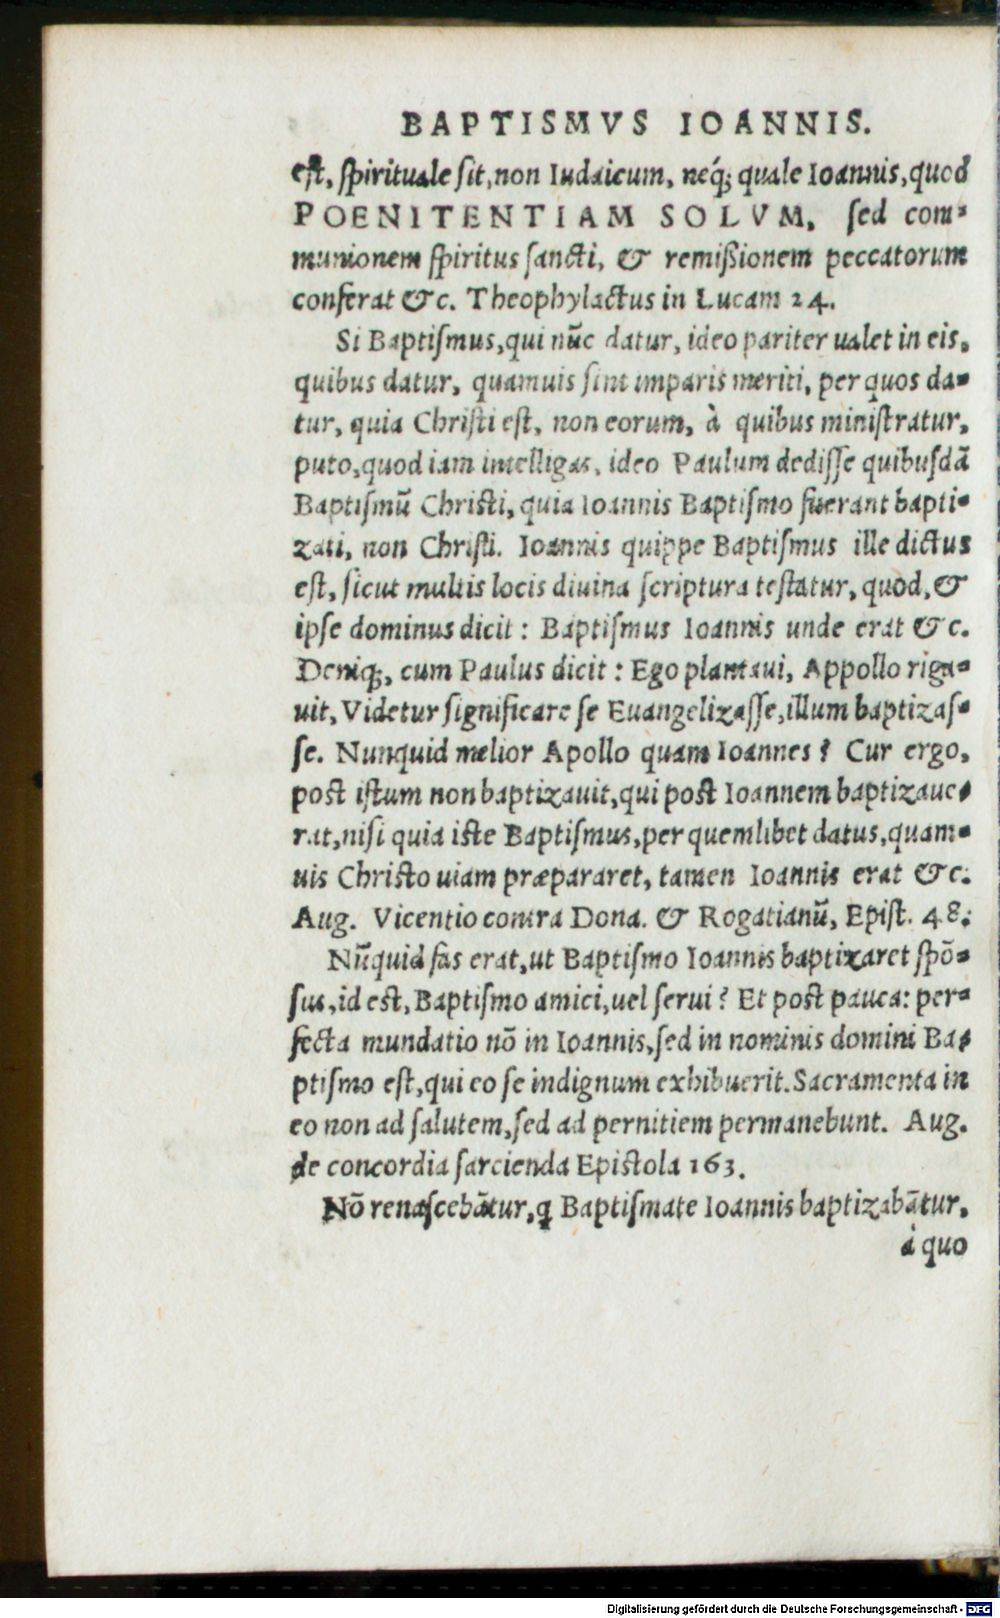 BAPTISMVS IOANNIS.
est, spirituale sit, non Iudaicum, neq́; quale Ioannis, quod
POENITENTIAM SOLVM, sed com-
munionem spiritus sancti, & remißionem peccatorum
conferat &c. Theophylactus in Lucam 24.
Si Baptismus, qui nũc datur, ideo pariter ualet in eis,
quibus datur, quamuis sint imparis meriti, per quos da-
tur, quia Christi est, non eorum, à quibus ministratur,
puto, quod iam intelligas, ideo Paulum dedisse quibusdã
Baptismũ Christi, quia Ioannis Baptismo fuerant bapti-
zati, non Christi. Ioannis quippe Baptismus ille dictus
est, sicut multis locis diuina scriptura testatur, quod, &
ipse dominus dicit : Baptismus Ioannis unde erat &c.
Deniq;, cum Paulus dicit : Ego plantaui, Appollo riga-
uit, Videtur significare se Euangelizasse, illum baptizas-
se. Nunquid melior Apollo quam Ioannes? Cur ergo,
post istum non baptizauit, qui post Ioannem baptizaue-
rat, nisi quia iste Baptismus, per quemlibet datus, quam-
uis Christo uiam præpararet, tamen Ioannis erat &c.
Aug. Vicentio contra Dona. & Rogatianũ, Epist. 48.
Nũquid fas erat, ut Baptismo Ioannis baptizaret spõ-
sus, id est, Baptismo amici, uel serui? Et post pauca: per-
fecta mundatio nõ in Ioannis, sed in nominis domini Ba-
ptismo est, qui eo se indignum exhibuerit. Sacramenta in
eo non ad salutem, sed ad pernitiem permanebunt. Aug.
de concordia sarcienda Epistola 163.
Nõ renascebãtur, q Baptismate Ioannis baptizabãtur,
à quo
Digitalisierung gefördert durch die Deutsche Forschungsgemeinschaft - DFG